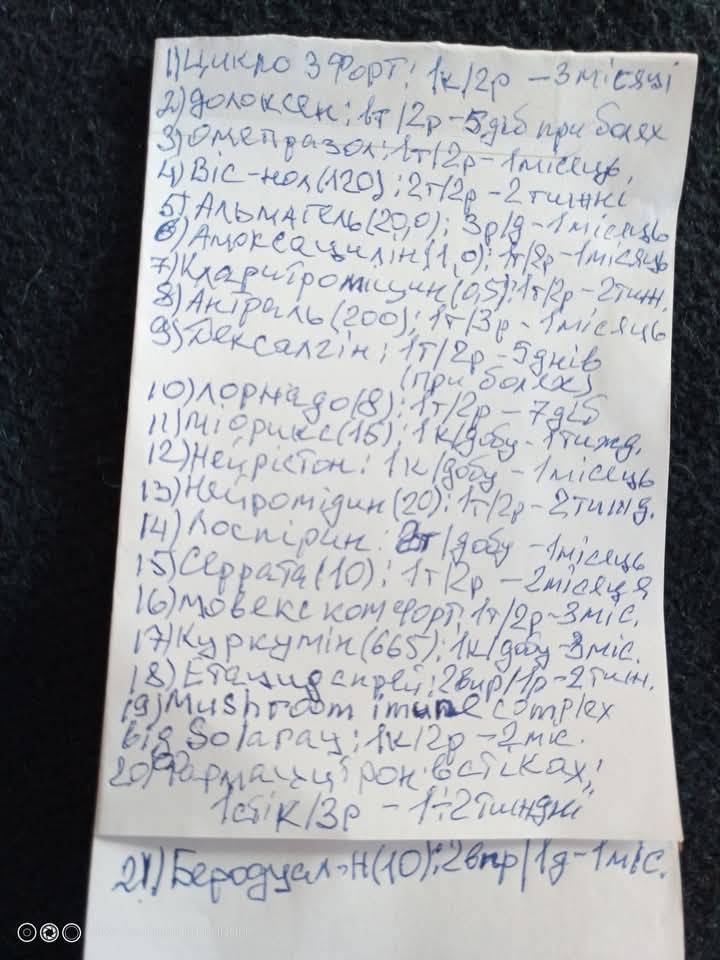 1) Цикло 3 Форт: 1к/2р – 3 місяці
2) Долоксен: 1т/2р – 5 діб при болях
3) Омепразол: 1т/2р – 1 місяць.
4) Віс-нол (120): 2т/2р – 2 тижні
5) Альмагель (20,0): 3р/д – 1 місяць
6) Амоксацилін (1,0): 1т/2р – 1 місяць
7) Кларитроміцин (0,5): 1т/2р – 2 тиж.
8) Антраль (200): 1т/3р – 1 місяць
9) Дексалгін: 1т/2р – 5 днів
(при болях)
10) Лорнадо (8): 1т/2р – 7 діб
11) Міорикс (15): 1к/добу – 1 тижд.
12) Нейрістон: 1к/добу – 1 місяць
13) Нейромідин (20): 1т/2р – 2 тижд.
14) Лоспірин: 2т/добу – 1 місяць
15) Серрата (10): 1т/2р – 2 місяця
16) Мовекс комфорт: 1т/2р – 3 міс.
17) Куркумін (665): 1к/добу – 3 міс.
18) Етацид спрей: 2впр/1р – 2 тиж.
19) Mushroom imune complex
від Solaray: 1к/2р – 2 міс.
20) Фармацитрон в стіках:
1 стік/3р – 1÷2 тиждні
21) Беродуал-Н (10): 2впр/1д – 1 міс.